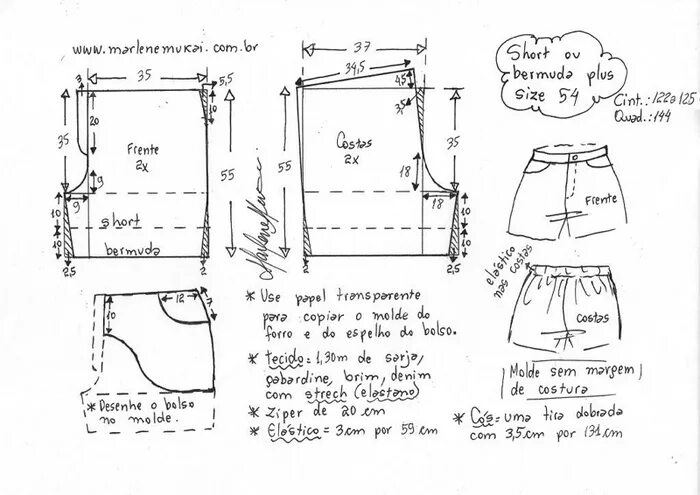 www.marlenemukai.com.br
35
5,5
3
10
20
35
Frente
2x
9
9
55
10
short
10
bermuda
2,5
2
37
34,5
4,5
3,5
Costas
2x
35
55
18
18
10
10
2
2,5
Marlene Mukai
Short ou
bermuda plus
size 54
Cint.: 122 a 125
Quad.: 144
Frente
elástico
nas costas
costas
Molde sem margem
de costura
12
7
10
* Desenhe o bolso
no molde.
* Use papel transparente
para copiar o molde do
forro e do espelho do bolso.
* tecido = 1,30m de sarja,
gabardine, brim, denim
com strech (elastano)
* Ziper de 20 cm
* Elástico = 3cm por 59 cm
* Cós = uma tira dobrada
com 3,5cm por 131 cm